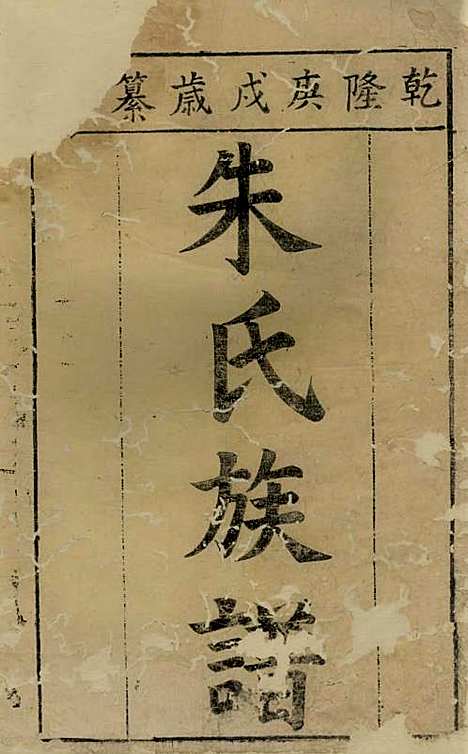 乾隆庚戌歳纂
朱氏族譜